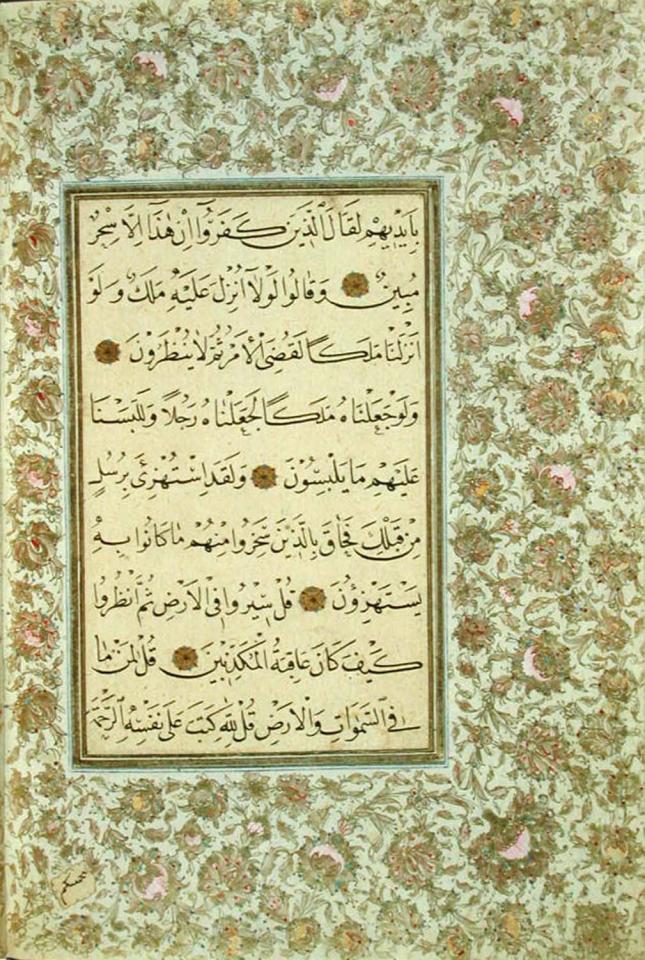 بِاَيْدِيهِمْ لَقَالَ الَّذِينَ كَفَرُوٓا اِنْ هٰذَٓا اِلَّا سِحْرٌ
مُبِينٌ وَقَالُوا لَوْلَٓا اُنْزِلَ عَلَيْهِ مَلَكٌ وَلَوْ
اَنْزَلْنَا مَلَكًا لَقُضِىَ الْاَمْرُ ثُمَّ لَا يُنْظَرُونَ
وَلَوْ جَعَلْنَاهُ مَلَكًا لَجَعَلْنَاهُ رَجُلًا وَلَلَبَسْنَا
عَلَيْهِمْ مَا يَلْبِسُونَ وَلَقَدِ اسْتُهْزِئَ بِرُسُلٍ
مِنْ قَبْلِكَ فَحَاقَ بِالَّذِينَ سَخِرُوا مِنْهُمْ مَا كَانُوا بِهِ
يَسْتَهْزِؤُنَ قُلْ سِيرُوا فِى الْاَرْضِ ثُمَّ انْظُرُوا
كَيْفَ كَانَ عَاقِبَةُ الْمُكَذِّبِينَ قُلْ لِمَنْ مَا
فِى السَّمٰوَاتِ وَالْاَرْضِ قُلْ لِلّٰهِ كَتَبَ عَلٰى نَفْسِهِ الرَّحْمَةَ